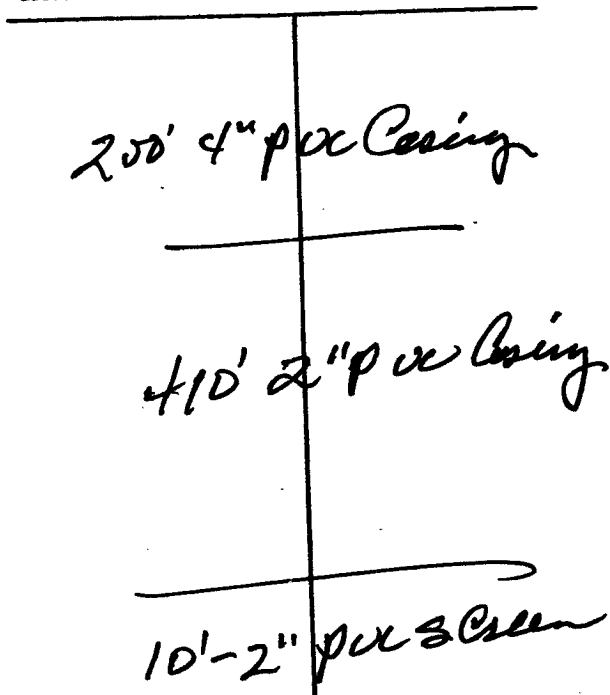 200' 4" pvc Casing
410' 2" pvc Casing
10'-2" pvc screen